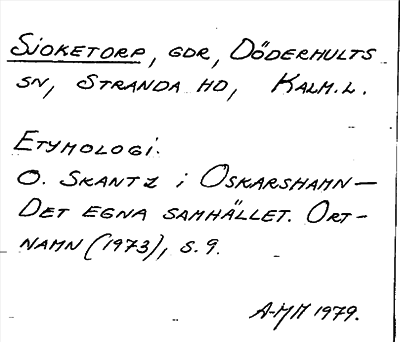 SJOKETORP, GDR, DÖDERHULTS
SN, STRANDA HD, KALM.L.
ETYMOLOGI.
O. SKANTZ i OSKARSHAMN—
DET EGNA SAMHÄLLET. ORT-
NAMN (1973), S. 9.
A-MM 1979.